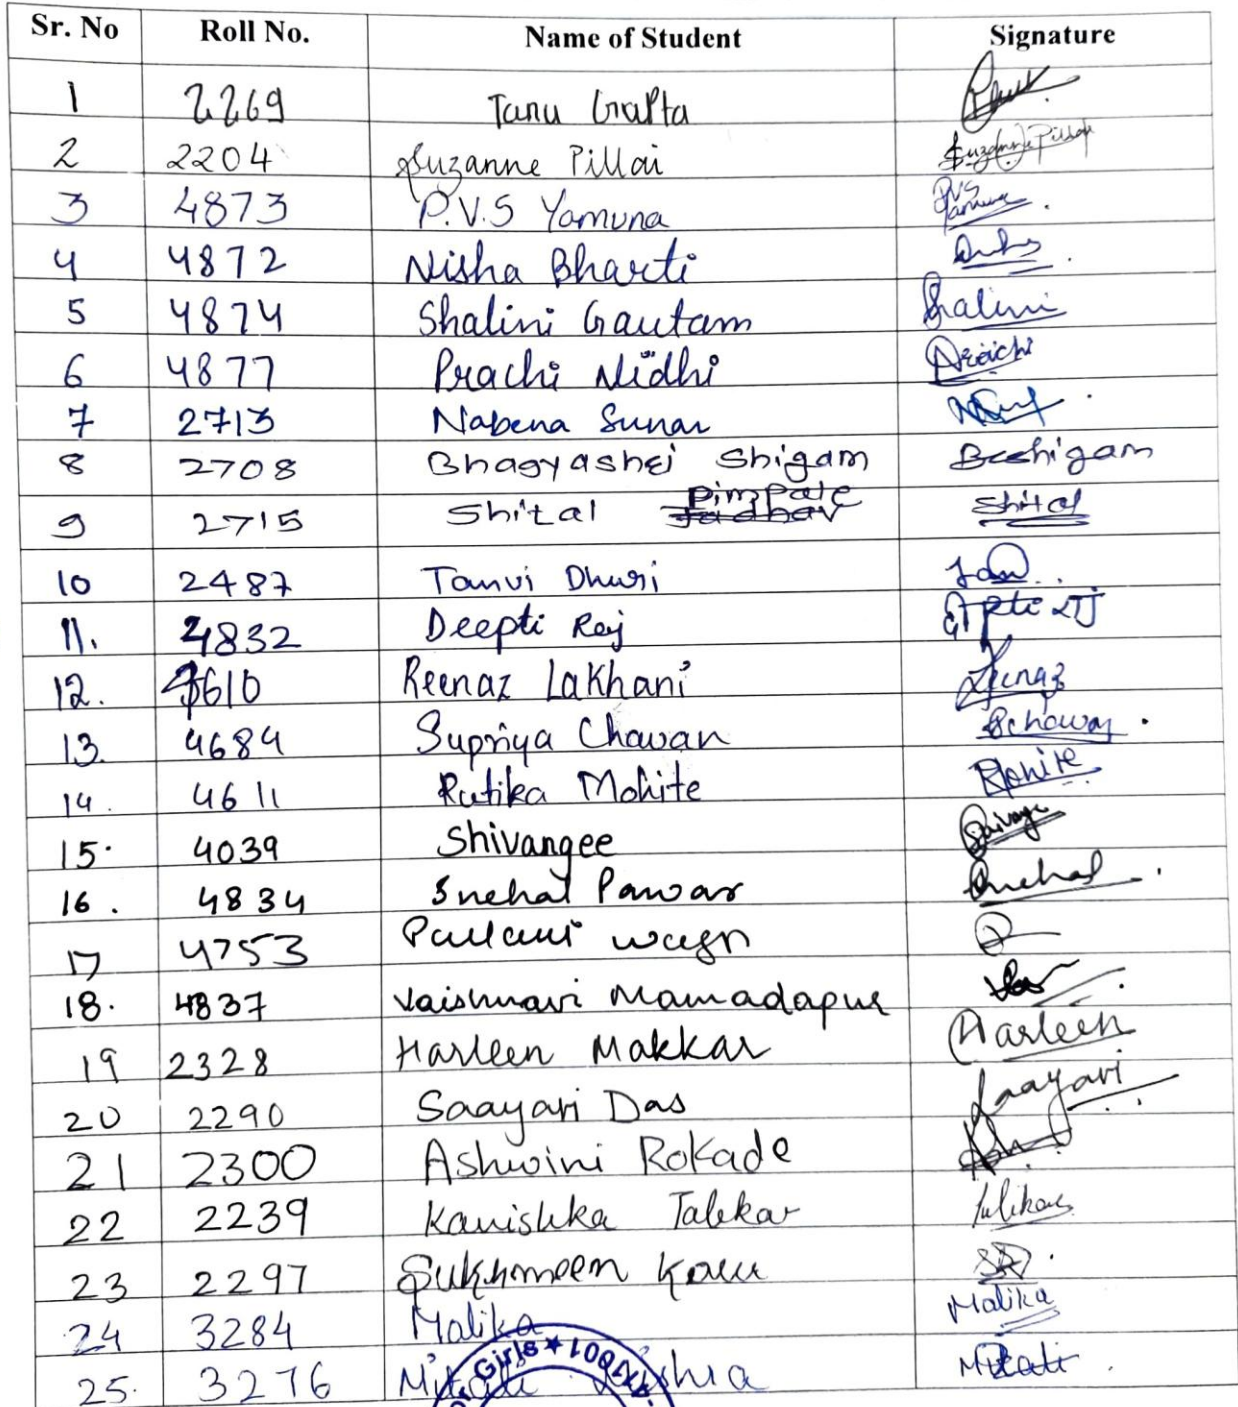 Sr. No Roll No. Name of Student Signature
1 2269 Tanu Gupta
2 2204 Suzanne Pillai Suzanne Pillai
3 4873 P.V.S Yamuna PVS Yamuna
4 4872 Nisha Bharti
5 4874 Shalini Gautam Shalini
6 4877 Prachi Nidhi Prachi
7 2713 Nabena Sunar
8 2708 Bhagyashri Shigam Bschigam
9 2715 Shital Jadhav Pimpale Shital
10 2487 Tanvi Dhuri
11. 4832 Deepti Raj
12. 4610 Reenaz Lakhani Reenaz
13. 4684 Supriya Chavan SChavan
14. 4611 Rutika Mohite RMohite
15. 4039 Shivangee
16. 4834 Snehal Pawar Snehal
17 4753 Pallavi wagh
18. 4837 Vaishnavi Mamadapur
19 2328 Harleen Makkar Harleen
20 2290 Saayari Das Saayari
21 2300 Ashwini Rokade
22 2239 Kanishka Talekar Talekar
23 2297 Sukhmeen Kaur
24 3284 Malika Malika
25. 3276 Mitali Mitali
Girls ★ 1001